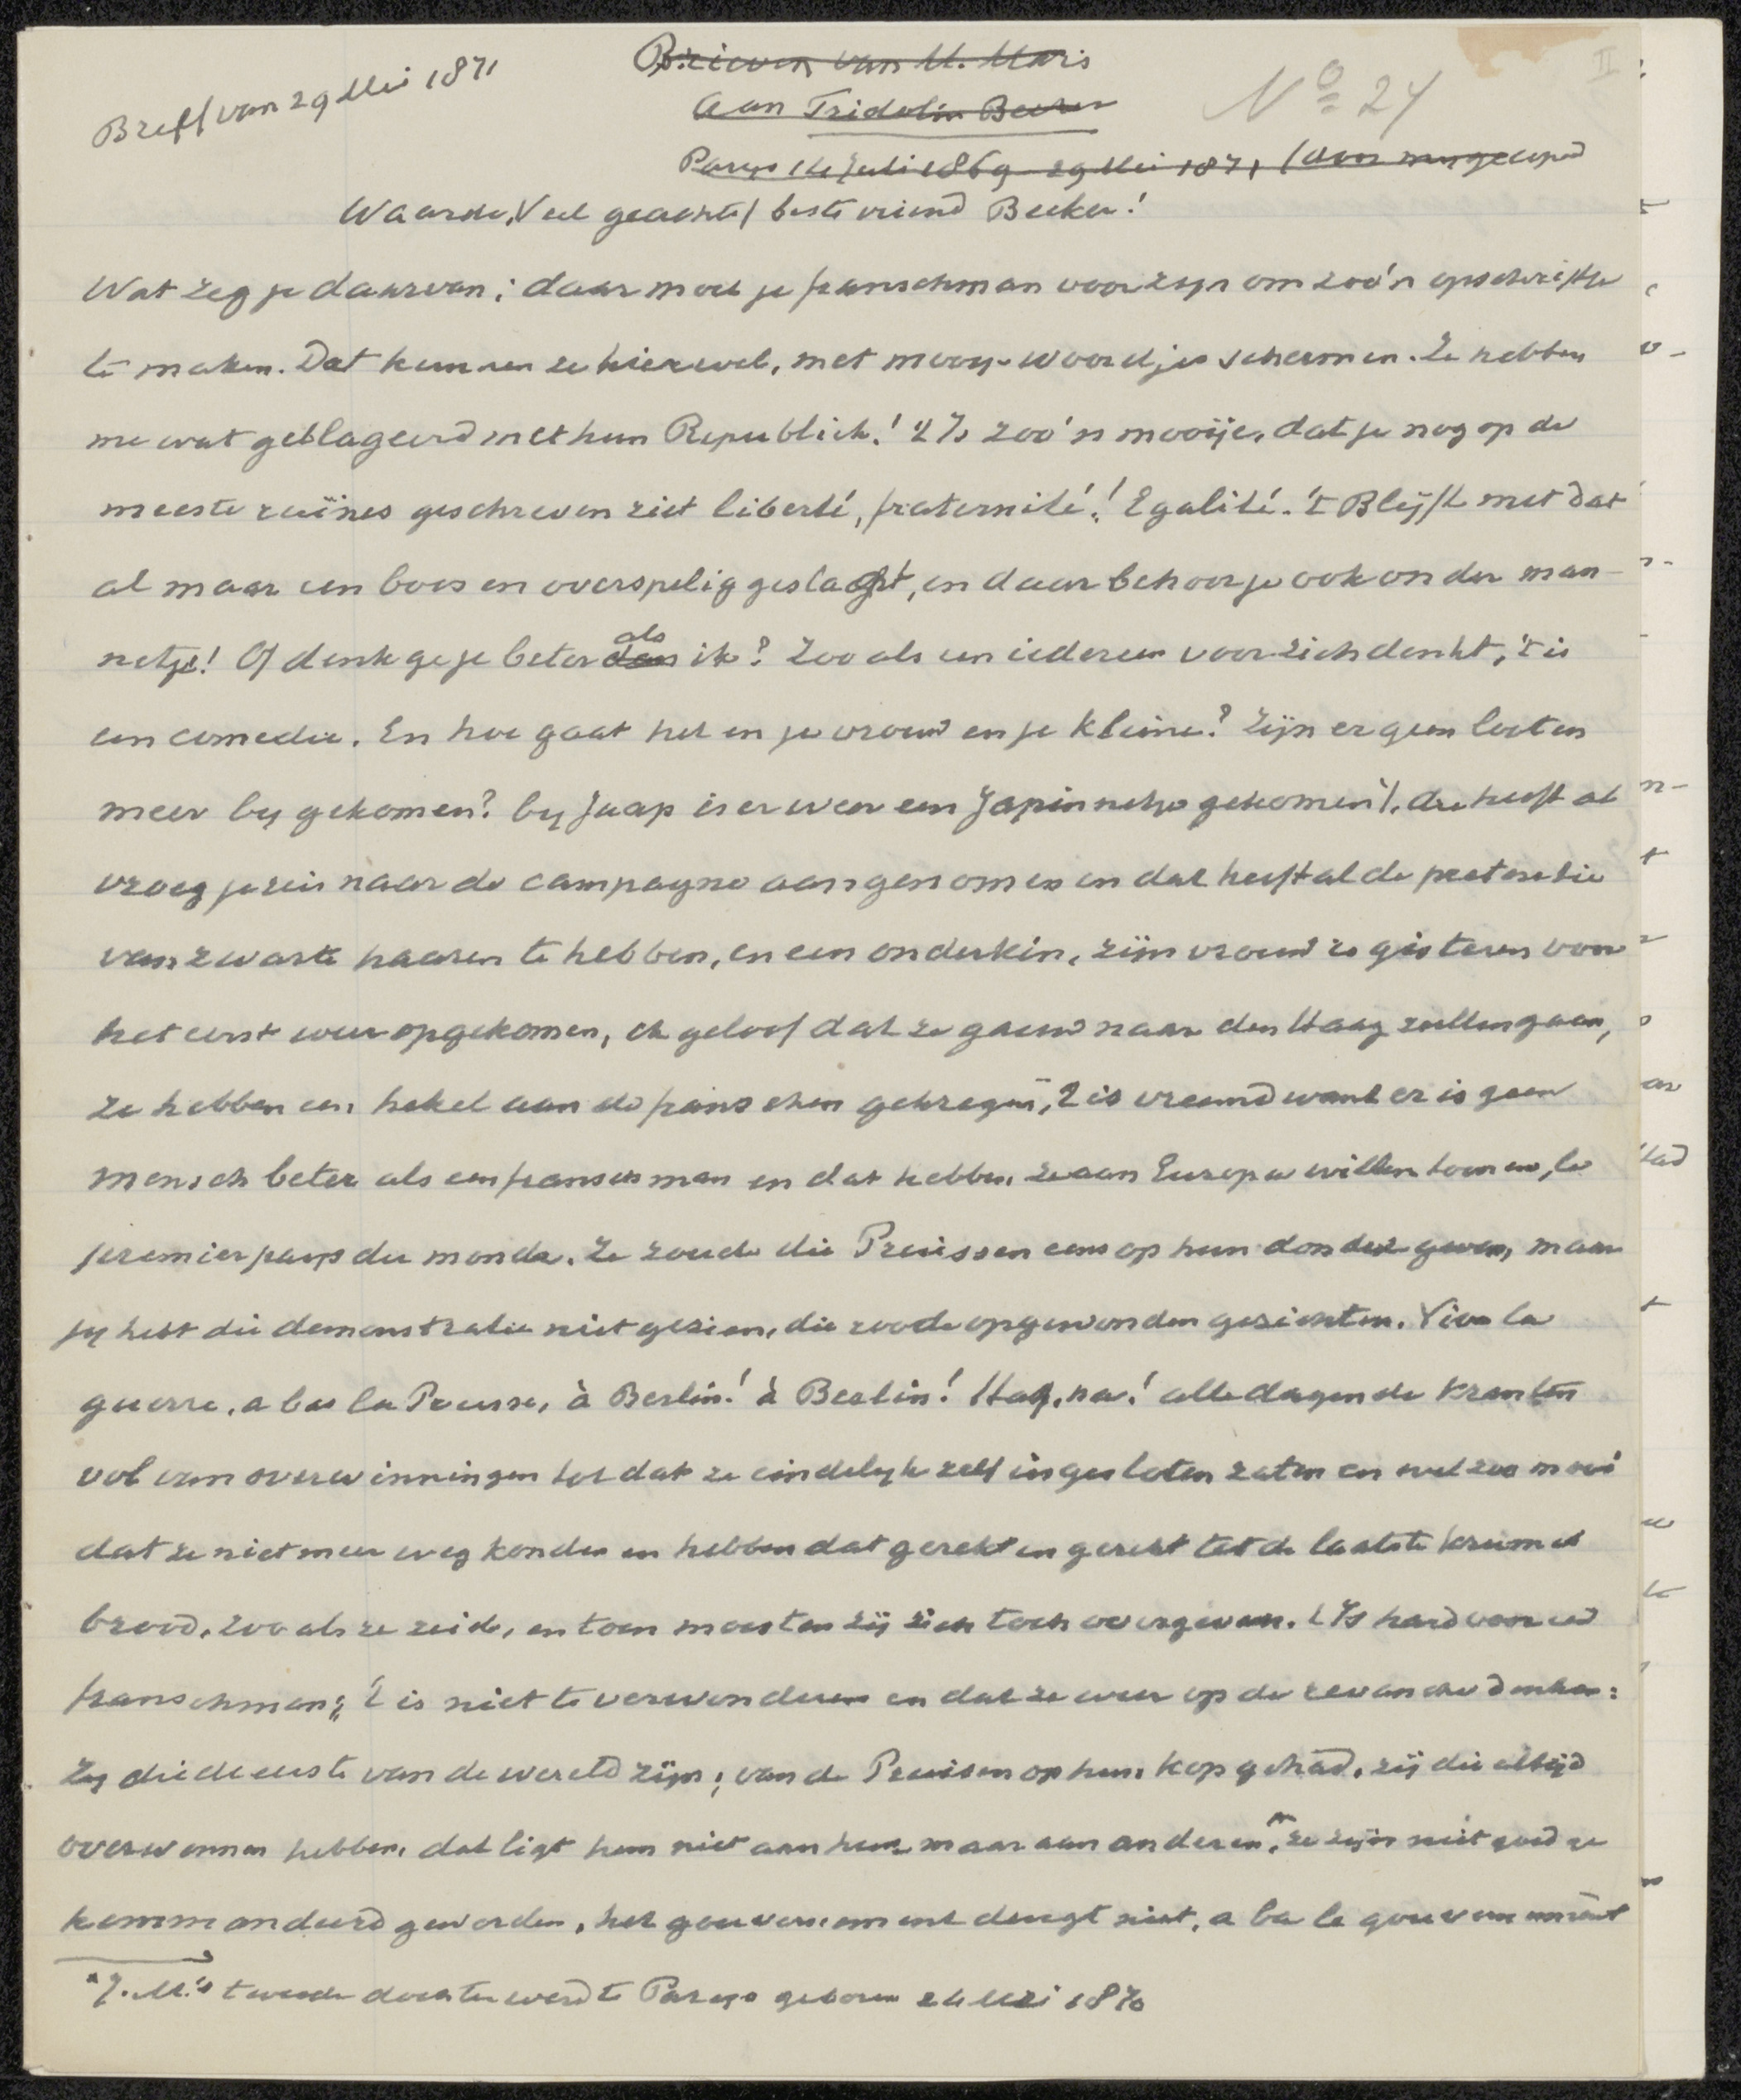 Brief van 29 Mei 1871
Brieven van M. Maris
aan Fridolin Becker
Nº 24
II
Parys 14 Juli 1869 - 29 Mei 1871
Waarde, Veel geachte, beste vriend Becker!
Wat zeg je daarvan; daar moet je franschman voor zyn om zoo'n opschriftje
te maken. Dat kunnen ze hier wel, met mooye woordjes schermen. Ze hebben
me wat geblageerd met hun Republiek! 't Is zoo'n mooije, dat je nog op de
meeste ruïnes geschreven ziet liberté, fraternité! Egalité. 't Blijft met dat
al maar een boos en overspelig geslacht, en daar behoor je ook onder man-
netje! Of denk ge je beter dan als ik? Zoo als een iedereen voor zich denkt, 't is
een comedie. En hoe gaat het en je vrouw en je kleine? Zijn er geen loten
meer by gekomen? by Jaap is er weer een Japinnetje gekomen, die heeft al
vroeg je reis naar de campagne aangenomen en dat heeft al de pretentie
van zwarte haaren te hebben, en een onderkin, zijn vrouw is gisteren voor
het eerst weer opgekomen, ik geloof dat ze gauw naar den Haag zullen gaan,
ze hebben een hekel aan de franschen gekregen, 't is vreemd want er is geen
mensch beter als een franschman en dat hebben ze aan Europa willen toonen, le
premier pays du monde. Ze zoude die Pruissen eens op hun donder geven, maar
jy hebt die demonstratie niet gezien, die roode opgewonden gezichten. Vive la
guerre, a bas la Prusse, à Berlin! à Berlin! Ha, ha! alle dagen de kranten
vol van overwinningen tot dat ze eindelyk zelf ingesloten zaten en wel zoo mooi
dat ze niet meer weg konden en hebben dat gerekt en gerekt tot de laatste kruimel
brood, zoo als ze zeide, en toen moesten zij zich toch overgeven. 't Is hard voor een
franschman; 't is niet te verwonderen en dat ze weer op de revanche denken:
Zy die de eerste van de wereld zijn; van de Pruisen op hun kop gehad, zij die altijd
overwonnen hebben, dat ligt hem niet aan hun maar aan anderen, ze zijn niet goed ge
kommandeerd geworden, het gouvernement deugt niet, a ba le gouvernement
* J. M.'s tweede dochter werd te Parys geboren 24 Mei 1870